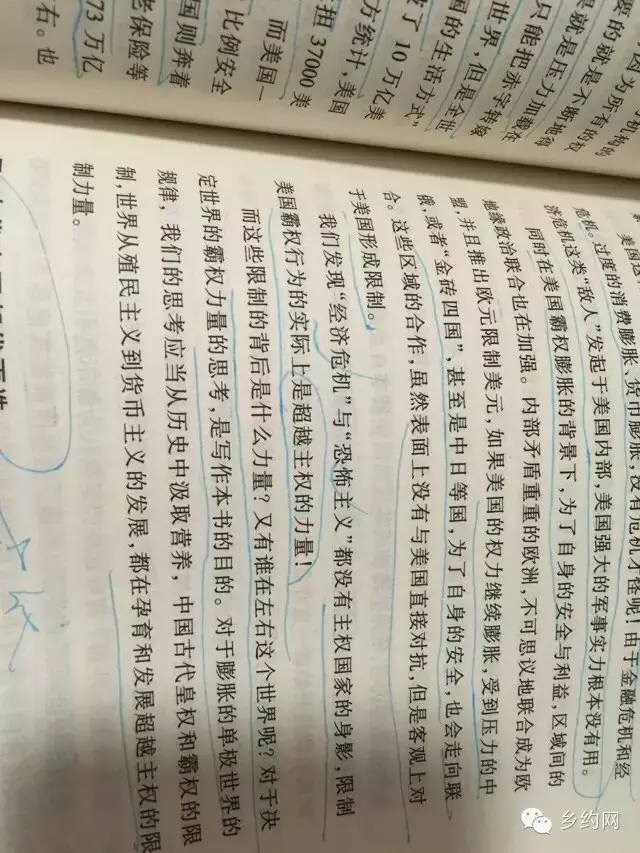 因为所有的权
果就是压力加载在
只能把赤字转嫁
世界，但是全世
国的生活方式”
了 10 万亿美
方统计，美国
担 37000 美
而美国一
比例安全
国则奔着
老保险等
73 万亿
右。也
危机。过度的消费膨胀、货币膨胀，没有危机才怪呢！由于金融危机和经
济危机这类“敌人”发起于美国内部，美国强大的军事实力根本没有用。
同时在美国霸权膨胀的背景下，为了自身的安全与利益，区域间的
地缘政治联合也在加强。内部矛盾重重的欧洲，不可思议地联合成为欧
盟，并且推出欧元限制美元，如果美国的权力继续膨胀，受到压力的中
俄，或者“金砖四国”，甚至是中日等国，为了自身的安全，也会走向联
合。这些区域的合作，虽然表面上没有与美国直接对抗，但是客观上对
于美国形成限制。
我们发现“经济危机”与“恐怖主义”都没有主权国家的身影，限制
美国霸权行为的实际上是超越主权的力量！
而这些限制的背后是什么力量？又有谁在左右这个世界呢？对于决
定世界的霸权力量的思考，是写作本书的目的。对于膨胀的单极世界的
规律，我们的思考应当从历史中汲取营养，中国古代皇权和霸权的限
制，世界从殖民主义到货币主义的发展，都在孕育和发展超越主权的限
制力量。
乡约网